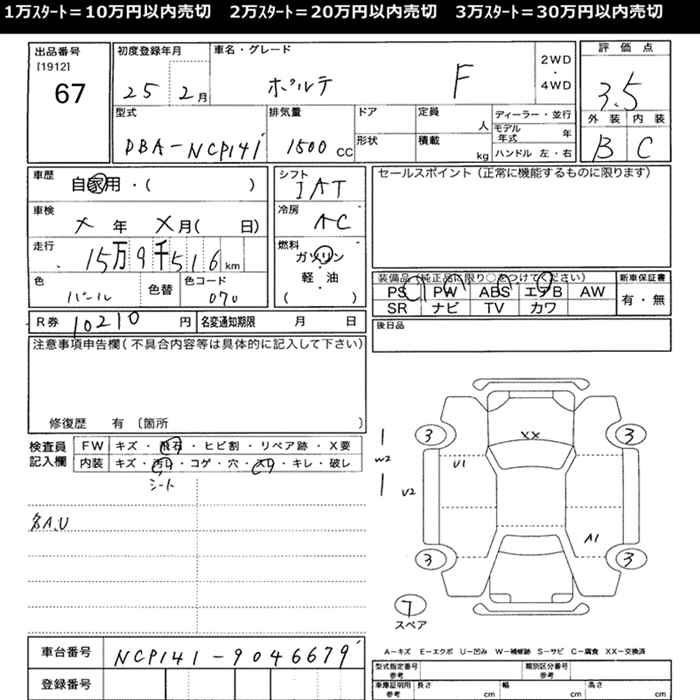 1万ｽﾀｰﾄ＝10万円以内売切　2万ｽﾀｰﾄ＝20万円以内売切　3万ｽﾀｰﾄ＝30万円以内売切
出品番号
[1912]
67
初度登録年月
25 2月
車名・グレード
ポルテ F
2WD
・
4WD
評価点
3.5
外装 内装
B C
型式
DBA-NCP141
排気量
1500 CC
ドア
形状
定員 人
積載 kg
ディーラー・並行
モデル年式 年
ハンドル 左・右
車歴
自家用・( )
車検
× 年 × 月( 日)
走行
15万9千516 km
色
パール
色替
色コード
070
シフト
IAT
冷房
AC
燃料
ガソリン
・
軽油
( )
セールスポイント (正常に機能するものに限ります)
装備品 (純正品に限り○をつけてください)
PS PW ABS エアB AW
SR ナビ TV カワ
新車保証書
有・無
R券 10210 円
名変通知期限 月 日
後日品
注意事項申告欄(不具合内容等は具体的に記入して下さい)
修復歴 有 〔箇所 〕
検査員記入欄
FW キズ・飛石・ヒビ割・リペア跡・X要
内装 キズ・汚レ・コゲ・穴・スレ・キレ・破レ
シート
各A.U
3 3
XX
W2
U1
V2
A1
3 3
7
スペア
A－キズ E－エクボ U－凹み W－補修跡 S－サビ C－腐食 XX－交換済
車台番号
NCP141-9046679
登録番号
型式指定番号
参考
類別区分番号
参考
車庫証明用
参考
長さ cm
幅 cm
高さ cm